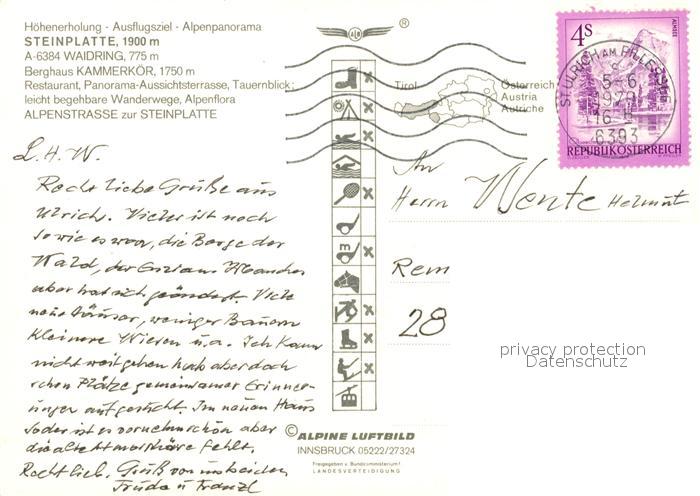 Höhenerholung - Ausflugsziel - Alpenpanorama
STEINPLATTE, 1900 m
A-6384 WAIDRING, 775 m
Berghaus KAMMERKÖR, 1750 m
Restaurant, Panorama-Aussichtsterrasse, Tauernblick;
leicht begehbare Wanderwege, Alpenflora
ALPENSTRASSE zur STEINPLATTE
®
Tirol
Österreich
Austria
Autriche
4S
ALMSEE
ST. ULRICH AM PILLERSEE
6393
REPUBLIK ÖSTERREICH
L. H. W.
Recht liebe Grüße aus
Ulrich. Vieles ist noch
so wie es war, die Berge der
Wald, der Enzian. Manches
aber hat sich geändert. Viele
neue Häuser, weniger Bauern
kleinere Wiesen u.a. Ich kann
nicht weit gehen hab aber doch
schon Plätze gemeinsamer Erinner-
ungen aufgesucht. Im neuen Haus
Soder ist es vornehm schön aber
die alte Atmosphäre fehlt.
Recht lieb. Gruß von uns beiden
Truda u Franzl
An
Herrn Wente Helmut
Rem
28
privacy protection
Datenschutz
© ALPINE LUFTBILD
INNSBRUCK 05222/27324
Freigegeben v. Bundesministerium f.
LANDESVERTEIDIGUNG